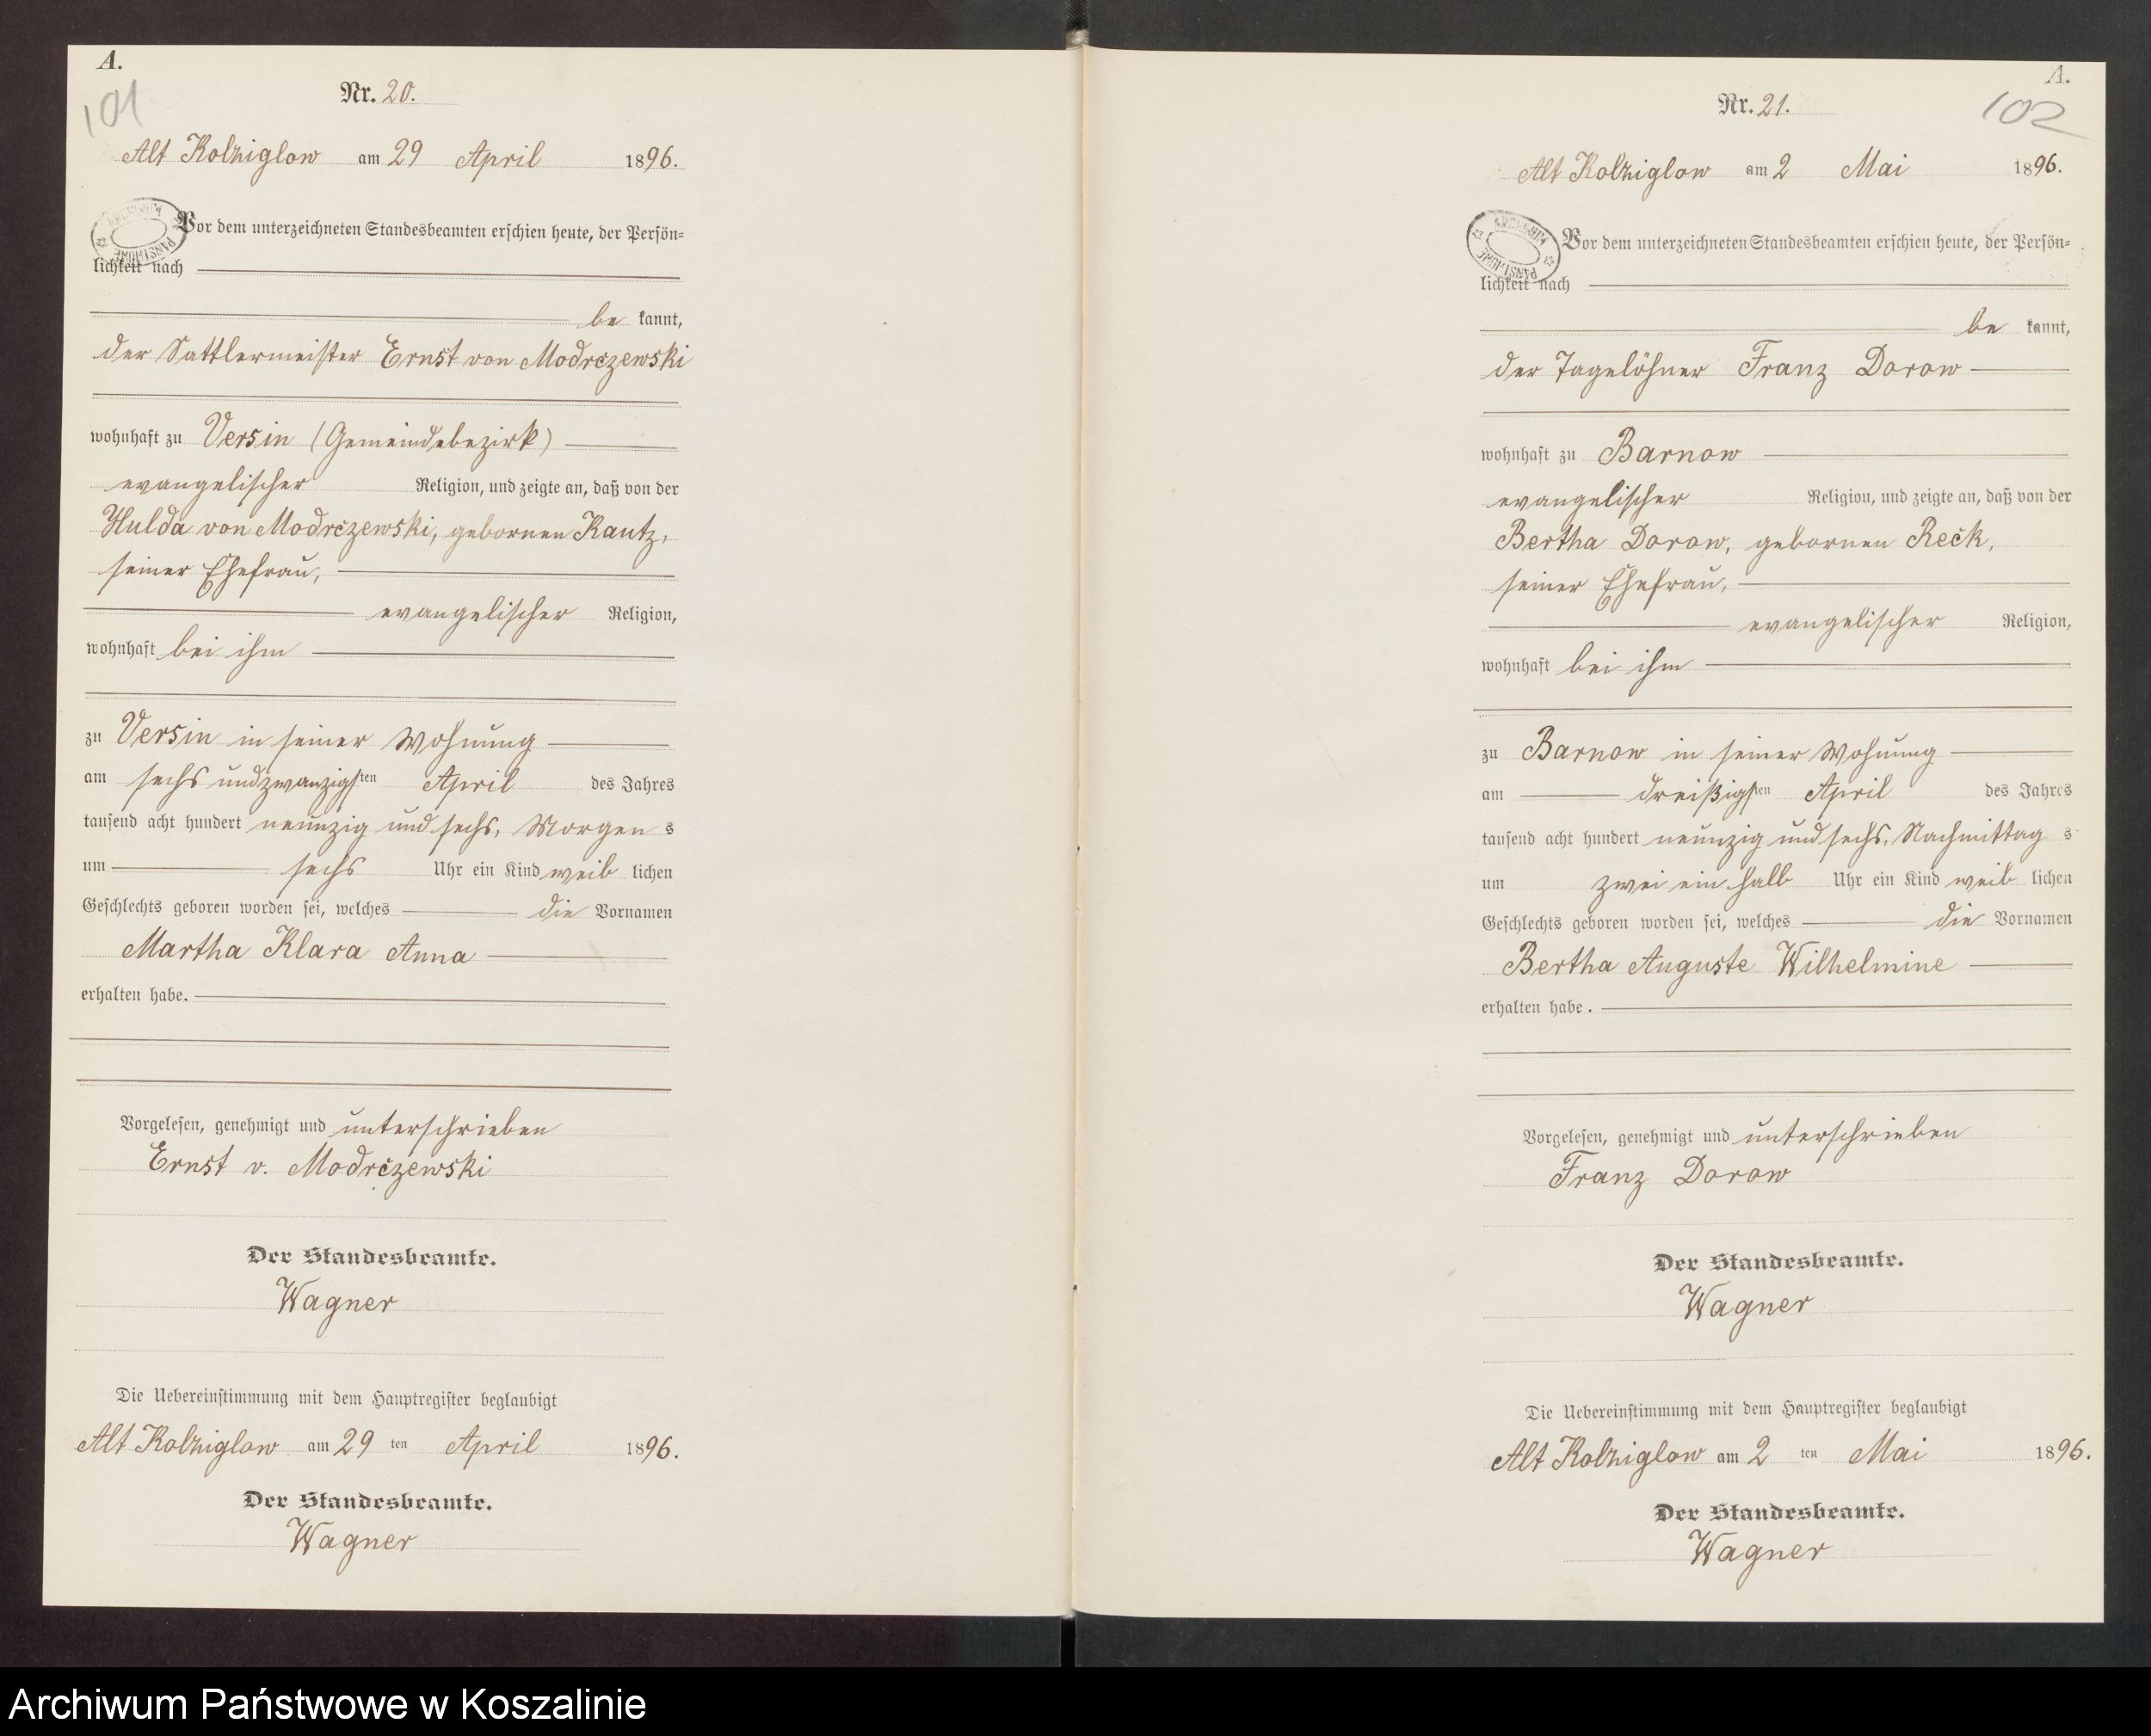 A.
101
Nr. 20.
Alt Kolziglow am 29 April 1896.
Vor dem unterzeichneten Standesbeamten erschien heute, der Persön=
lichkeit nach
be kannt,
der Sattlermeister Ernst von Modrczewski
wohnhaft zu Versin (Gemeindebezirk)
evangelischer Religion, und zeigte an, daß von der
Hulda von Modrczewski, gebornen Kautz,
seiner Ehefrau,
evangelischer Religion,
wohnhaft bei ihm
zu Versin in seiner Wohnung
am sechs undzwanzigsten April des Jahres
tausend acht hundert neunzig und sechs, Morgen s
um sechs Uhr ein Kind weib lichen
Geschlechts geboren worden sei, welches die Vornamen
Martha Klara Anna
erhalten habe.
Vorgelesen, genehmigt und unterschrieben
Ernst v. Modrczewski
Der Standesbeamte.
Wagner
Die Uebereinstimmung mit dem Hauptregister beglaubigt
Alt Kolziglow am 29 ten April 1896.
Der Standesbeamte.
Wagner
A.
102
Nr. 21.
Alt Kolziglow am 2 Mai 1896.
Vor dem unterzeichneten Standesbeamten erschien heute, der Persön=
lichkeit nach
be kannt,
der Tagelöhner Franz Dorow
wohnhaft zu Barnow
evangelischer Religion, und zeigte an, daß von der
Bertha Dorow, gebornen Reck,
seiner Ehefrau,
evangelischer Religion,
wohnhaft bei ihm
zu Barnow in seiner Wohnung
am dreißigsten April des Jahres
tausend acht hundert neunzig und sechs, Nachmittag s
um zwei ein halb Uhr ein Kind weib lichen
Geschlechts geboren worden sei, welches die Vornamen
Bertha Auguste Wilhelmine
erhalten habe.
Vorgelesen, genehmigt und unterschrieben
Franz Dorow
Der Standesbeamte.
Wagner
Die Uebereinstimmung mit dem Hauptregister beglaubigt
Alt Kolziglow am 2 ten Mai 1896.
Der Standesbeamte.
Wagner
Archiwum Państwowe w Koszalinie